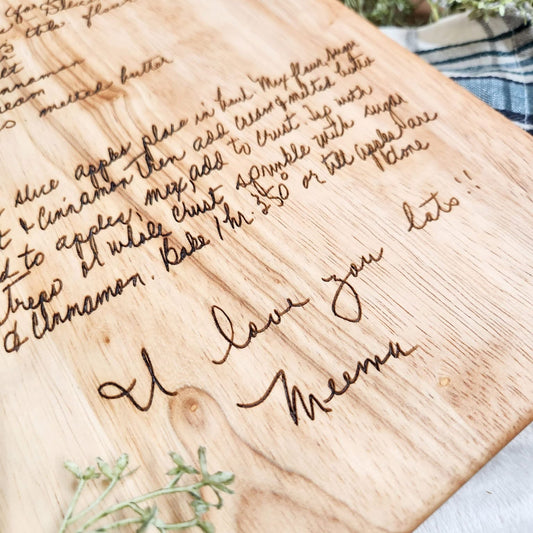 for slic
tbs flour
lt
innamon
ream
s melted butter
slice apples place in bowl Mix flour, sugar
t & cinnamon then add cream & melted butter
d to apples, mix, add to crust top with
treps or whole crust sprinkle with sugar
& cinnamon. Bake 1 hr. 350° or till apples are
done
I love you lots!!
Meema